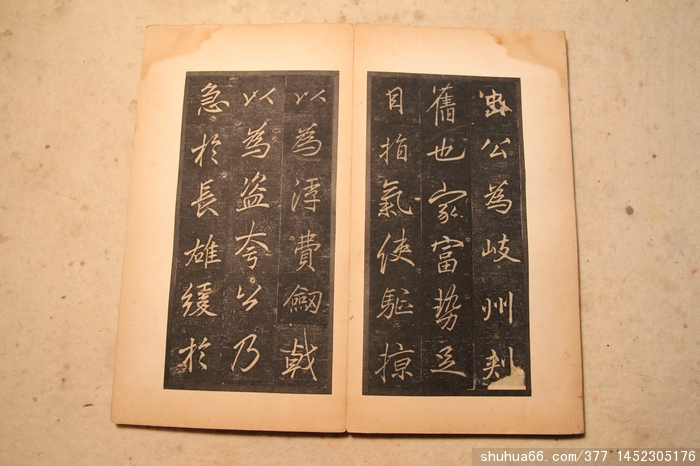 公為岐州刺
舊也家富勢足
目指氣使驅掠
以為浮費劔戟
以為盜夸公乃
急於長雄緩於
shuhua66.com/377 1452305176